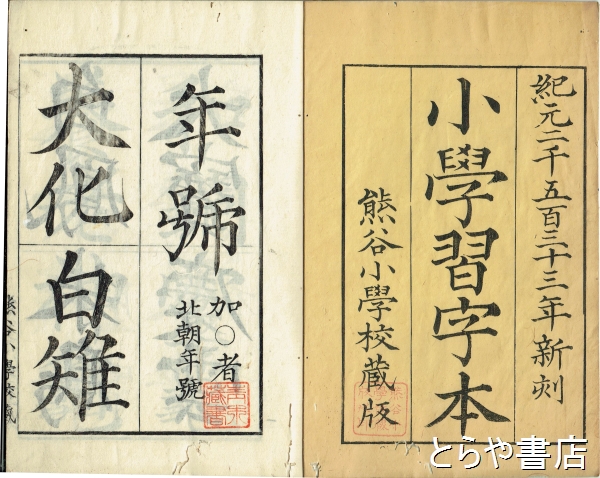 紀元二千五百三十三年新刻
小學習字本
熊谷小學校蔵版
年號
加〇者
北朝年號
大化
白雉
熊谷小學校蔵
とらや書店